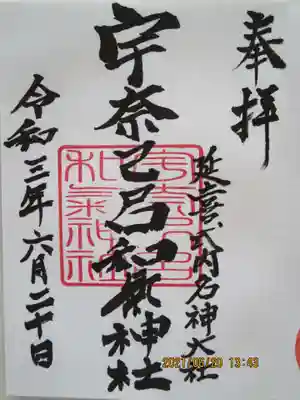 奉拝
延喜式内名神大社
宇奈己呂和氣神社
宇奈己呂
和氣神社
令和三年六月二十日
2021/06/20 13:43